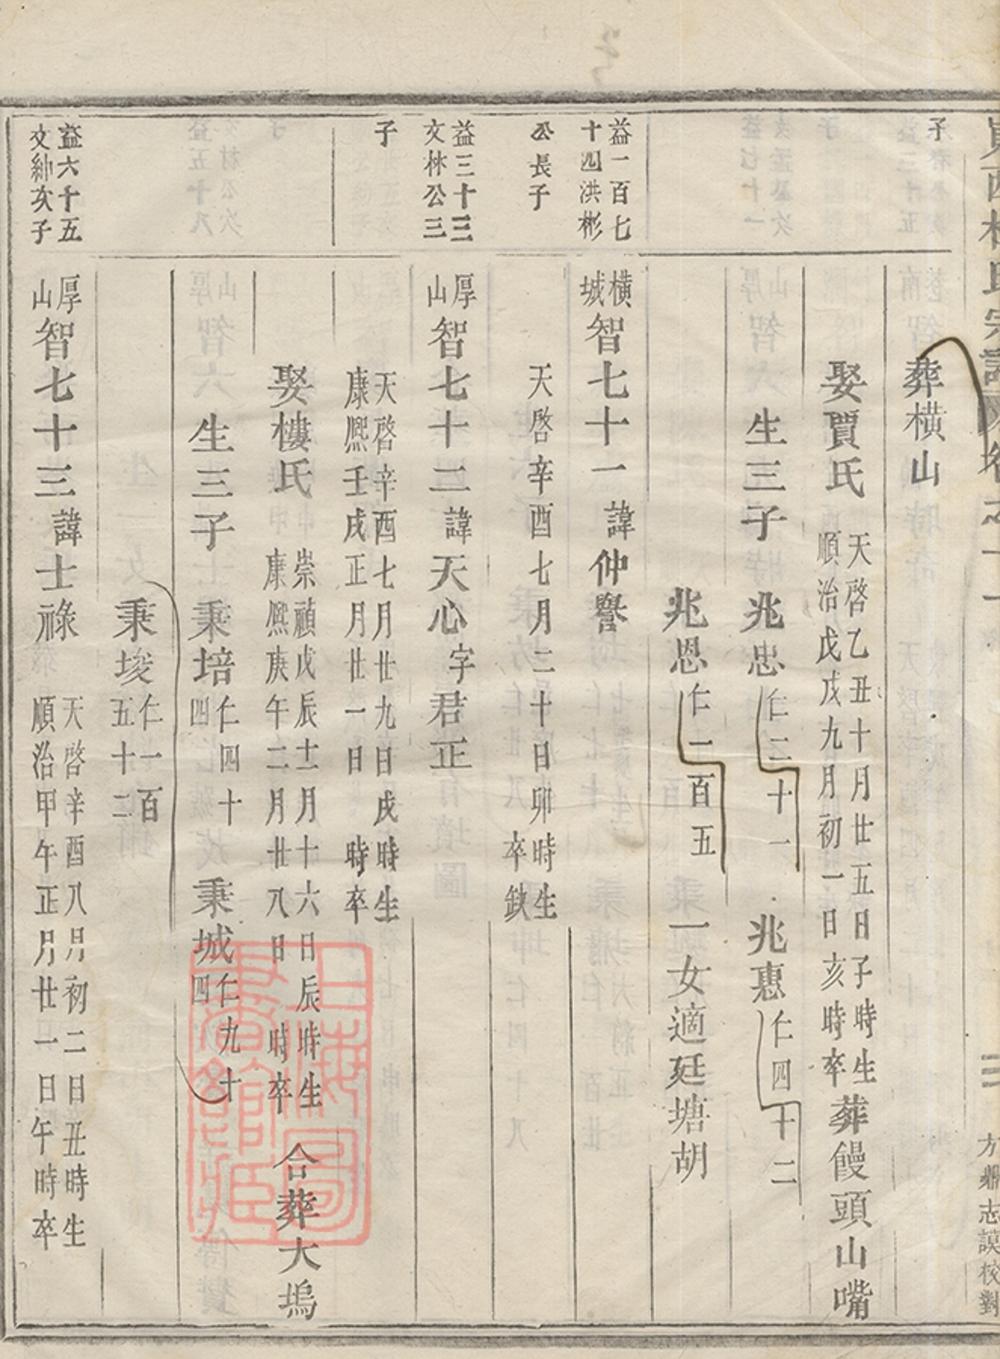 子
葬橫山
娶賈氏 天啓乙丑十月廿五日子時生 順治戊戌九月初一日亥時卒 葬饅頭山嘴
生三子 兆忠 仁二十一 兆惠 仁四十二
兆恩 仁一百五 一女適廷塘胡
益一百七十四洪彬
橫城 智七十一 諱仲譽
公長子
天啓辛酉七月二十日卯時生 卒缺
益三十三文林公三
厚山 智七十二 諱天心字君正
子
天啓辛酉七月廿九日戌時生 康熙壬戌正月廿一日 時卒
娶樓氏 崇禎戊辰十二月十六日辰時生 康熙庚午二月廿八日 時卒 合葬大塢
生三子 秉培 仁四十四 秉城 仁九十四
秉埈 仁一百五十二
益六十五文紳次子
厚山 智七十三 諱士祿 天啓辛酉八月初二日丑時生 順治甲午正月廿一日午時卒
方鼎志謨校對